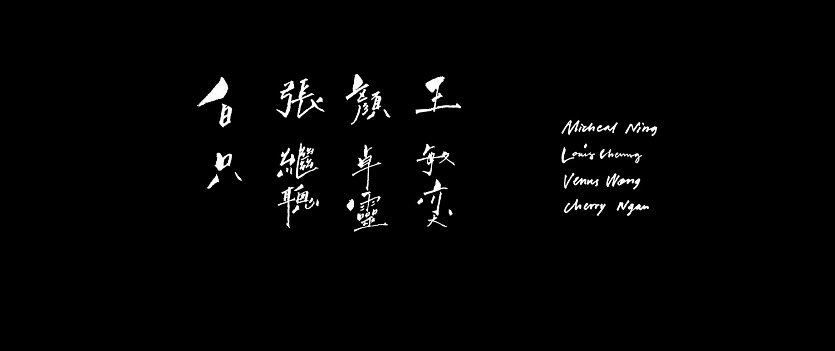 王敏奕
顏卓靈
張繼聰
白只
Micheal Ning
Louis Cheung
Venus Wong
Cherry Ngan